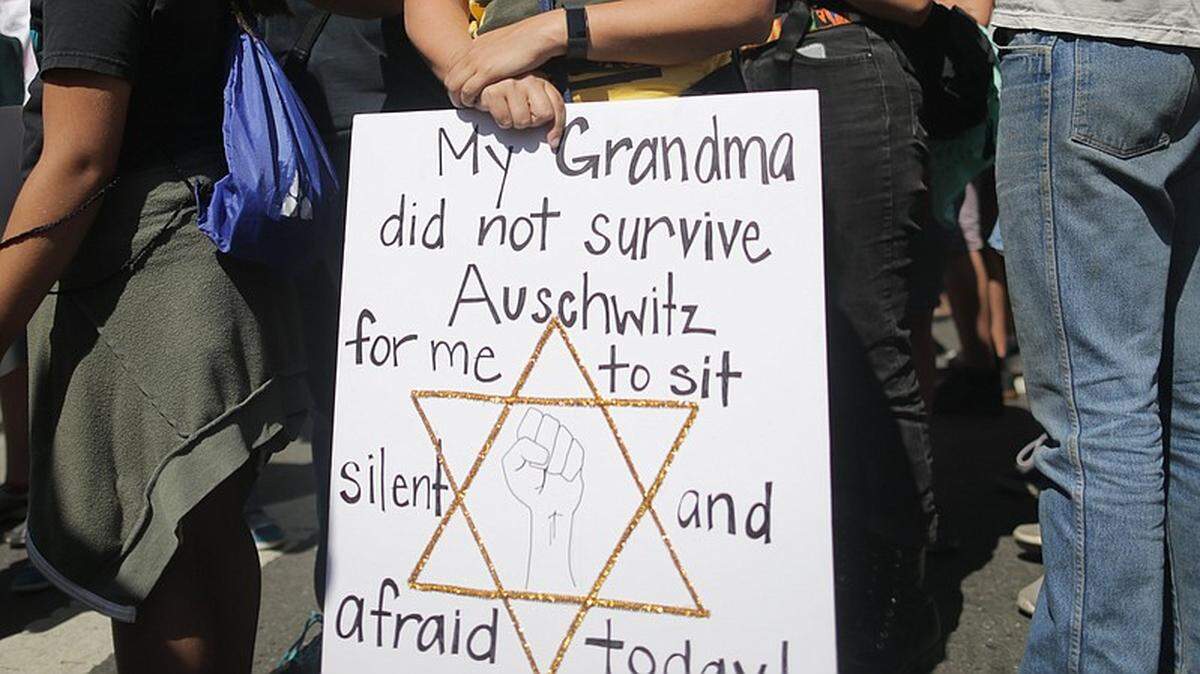 My Grandma
did not survive
Auschwitz
for me to sit
silent and
afraid today!